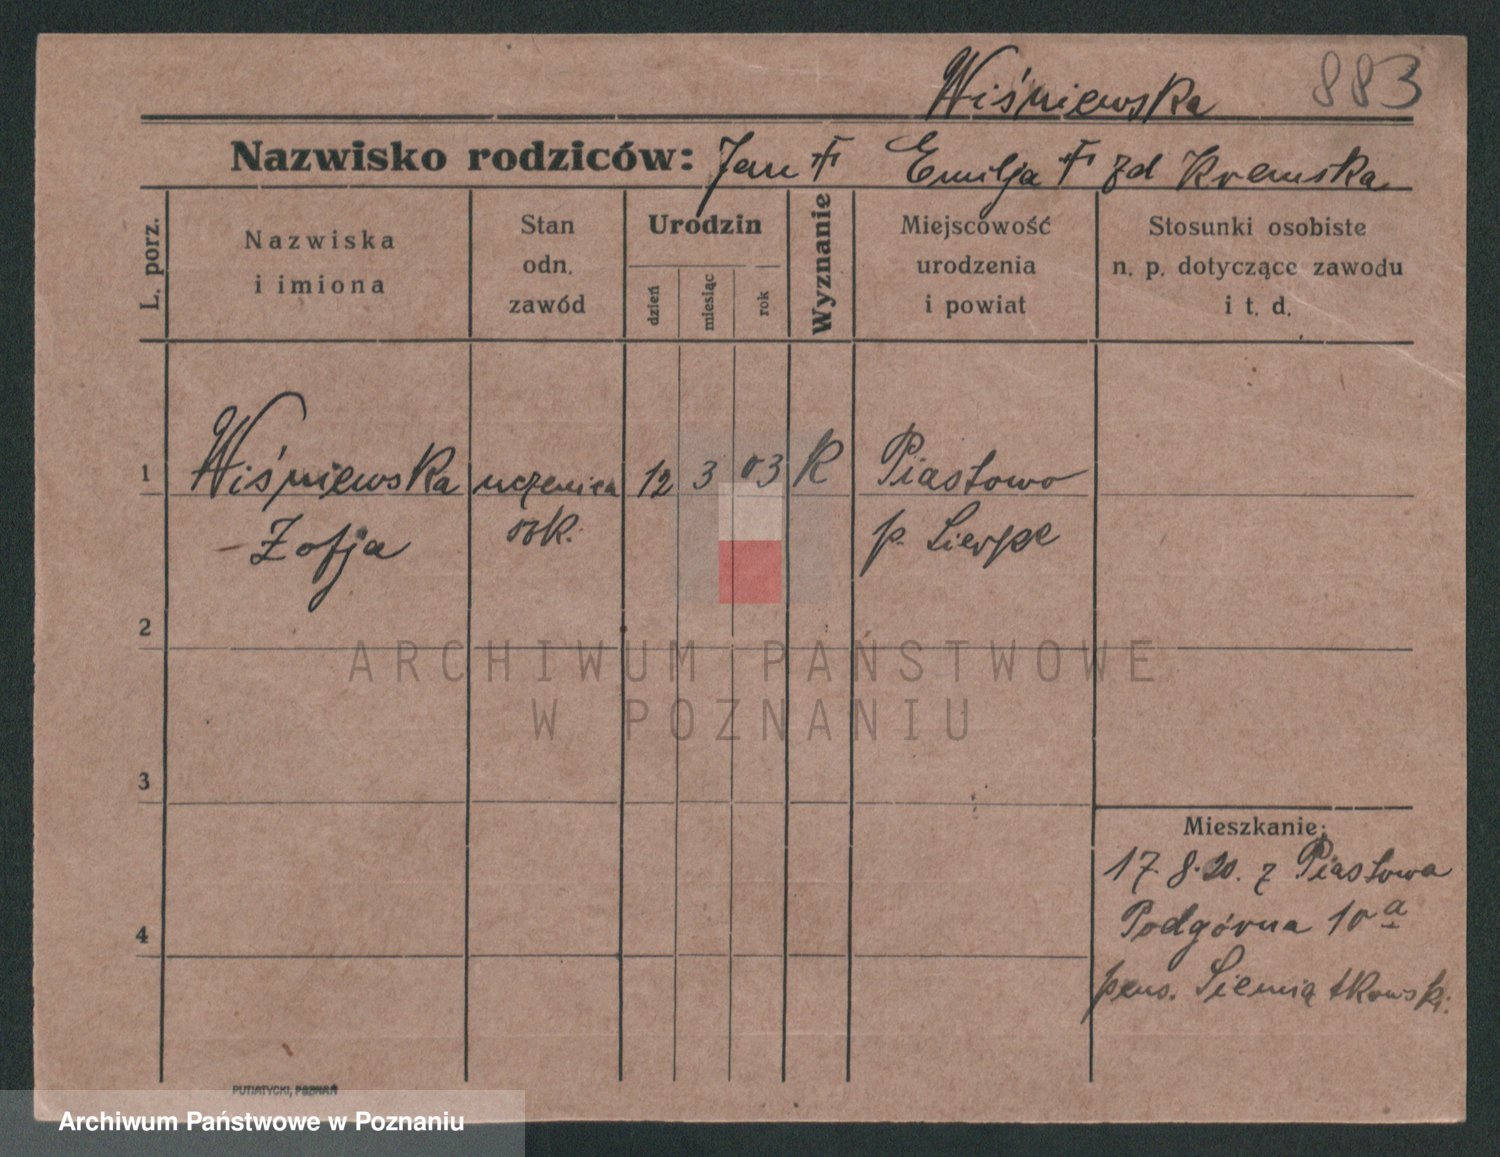 Wiśniewska 883
Nazwisko rodziców: Jan Emilja zd Kremska
L. porz.
Nazwiska
i imiona
Stan
odn.
zawód
Urodzin
dzień
miesiąc
rok
Wyznanie
Miejscowość
urodzenia
i powiat
Stosunki osobiste
n. p. dotyczące zawodu
i t. d.
1 Wiśniewska uczenica 12 3 03 K Piastowo
Zofja p. Sierpc
2
ARCHIWUM PAŃSTWOWE
W POZNANIU
3
Mieszkanie:
17.8.20. z Piastowa
4 Podgórna 10 a
pens. Siemiątkowski.
PUTIATYCKI, POZNAŃ
Archiwum Państwowe w Poznaniu